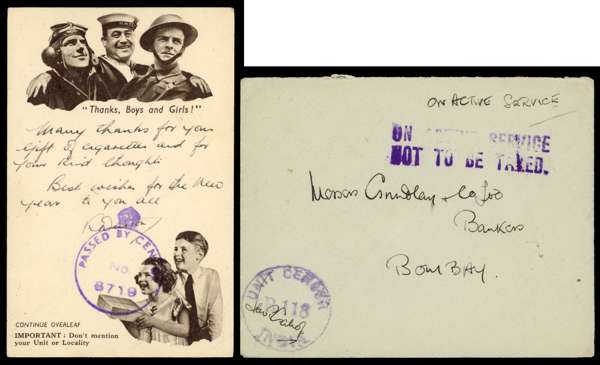 "Thanks, Boys and Girls!"
Many thanks for your
gift of cigarettes and for
your kind thoughts
Best wishes for the New
year to you all
PASSED BY CENSOR
No.
6719
CONTINUE OVERLEAF
IMPORTANT: Don't mention
your Unit or Locality
ON ACTIVE SERVICE
ON ACTIVE SERVICE
NOT TO BE TAXED.
Messrs & Co Ltd
Bankers
BOMBAY.
UNIT CENSOR
118
INDIA